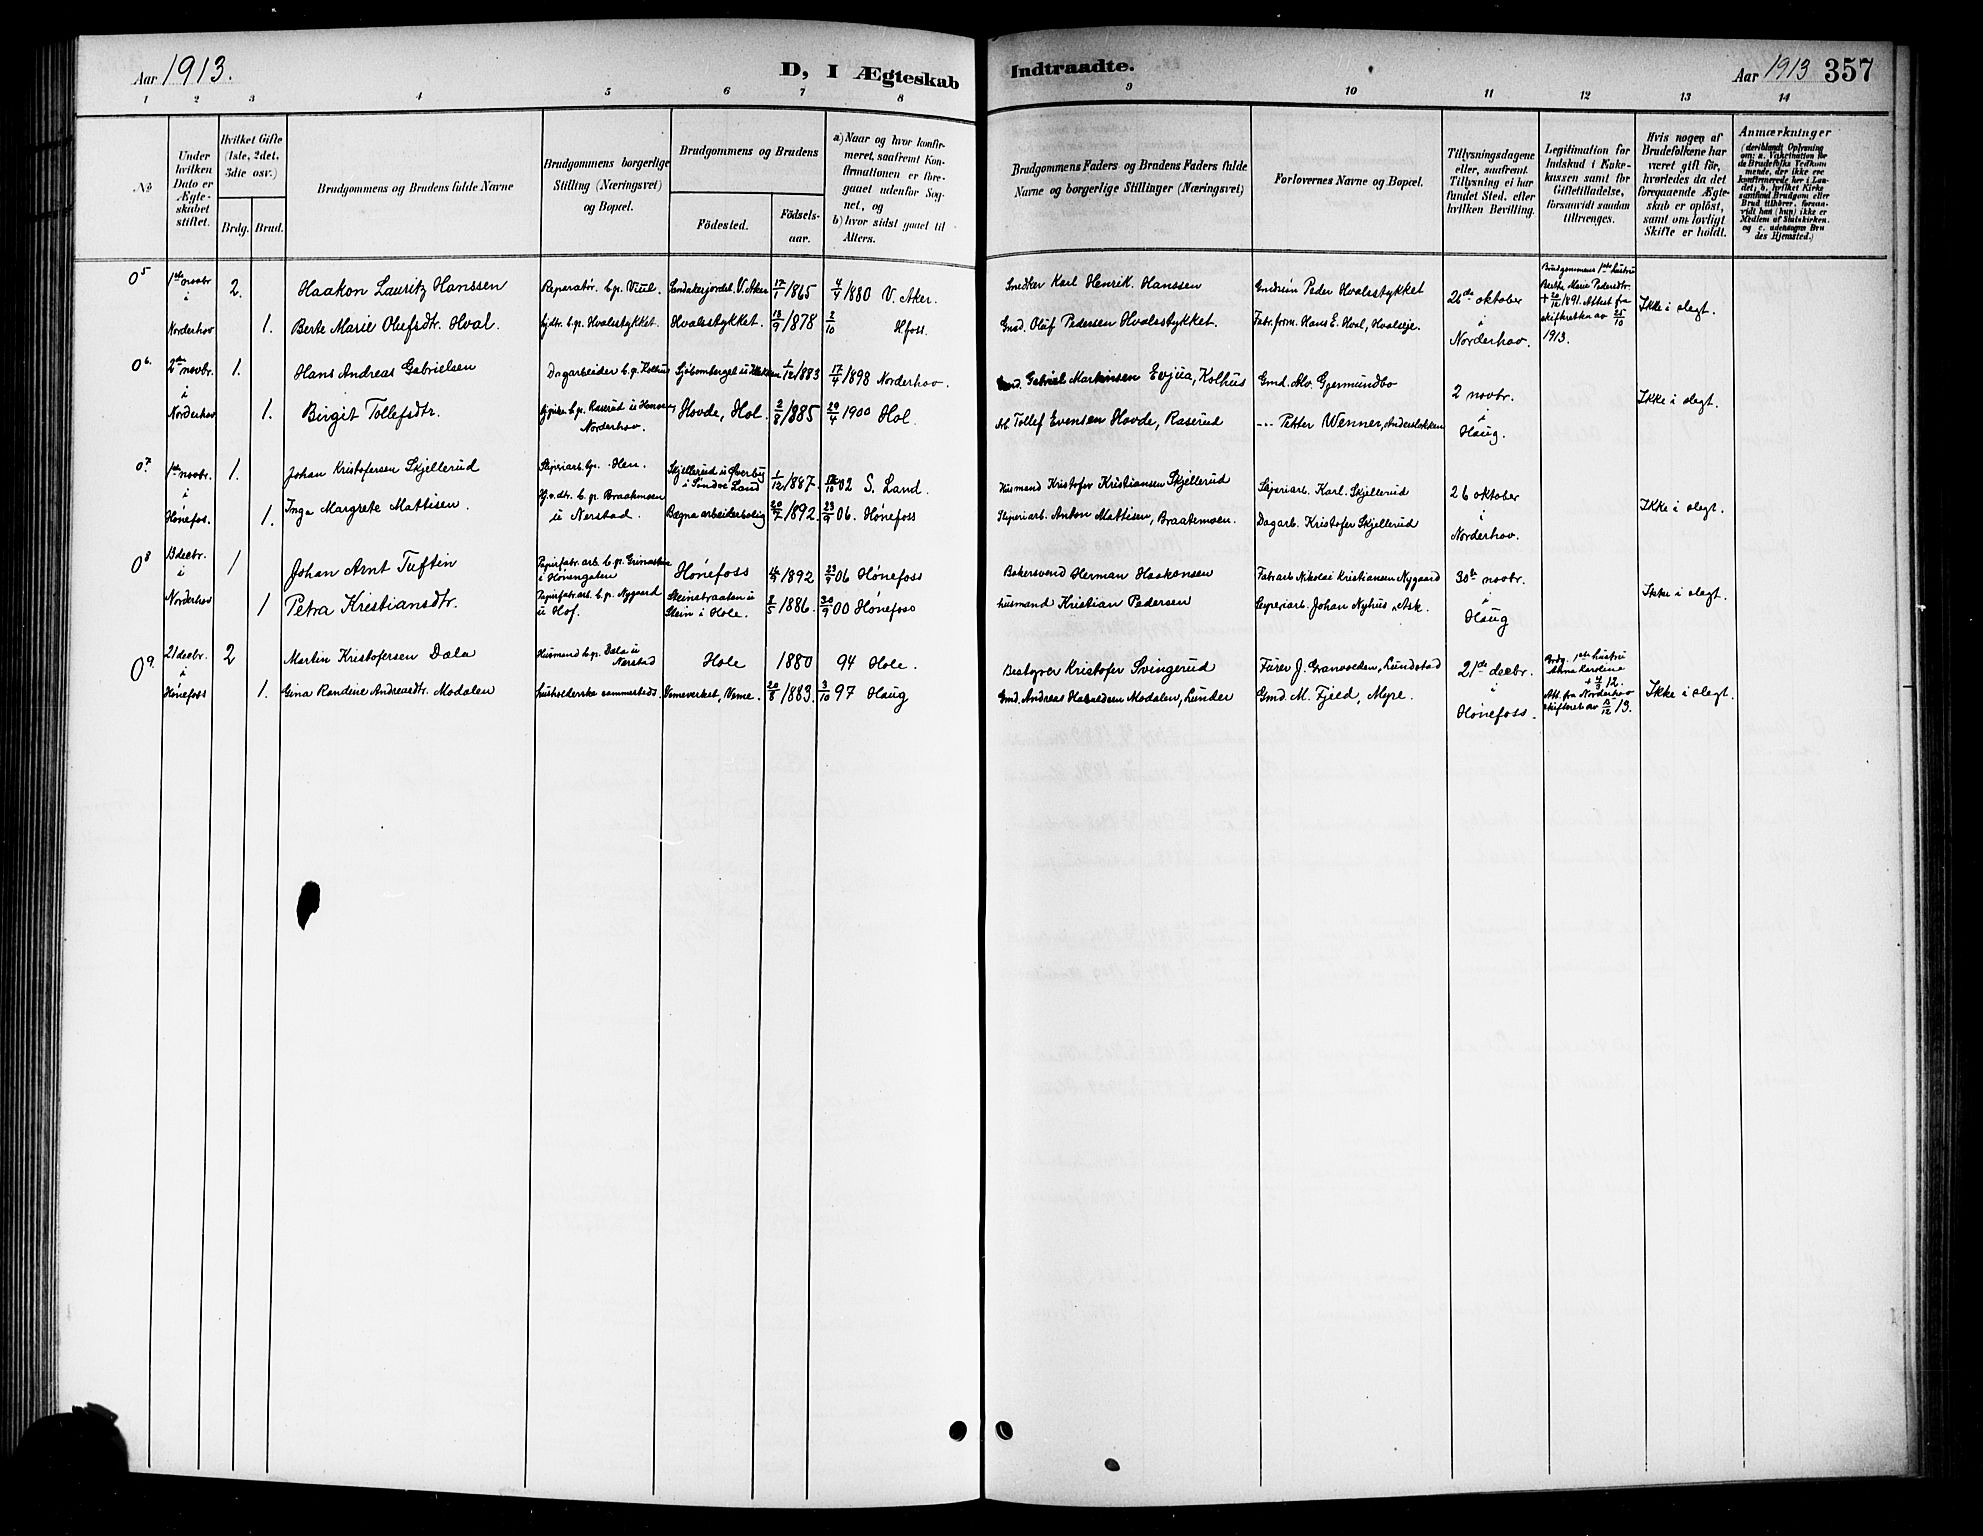 Aar 1913.
D, I Ægteskab
Indtraadte.
Aar 1913 357
1 2 3 4 5 6 7 8 9 10 11 12 13 14
№
Under hvilken Dato er Ægteskabet stiftet.
Hvilket Gifte (1ste, 2det, 3die osv.)
Brdg. Brud.
Brudgommens og Brudens fulde Navne
Brudgommens borgerlige Stilling (Næringsvei) og Bopæl.
Brudgommens og Brudens
Födested.
Födselsaar.
a) Naar og hvor konfirmeret, saafremt Konfirmationen er foregaaet udenfor Sognet, og
b) hvor sidst gaaet til Alters.
Brudgommens Faders og Brudens Faders fulde Navne og borgerlige Stillinger (Næringsvei)
Forlovernes Navne og Bopæl.
Tillysningsdagene eller, saafremt Tillysning ei har fundet Sted, efter hvilken Bevilling.
Legitimation for Indskud i Enkekassen samt for Giftetilladelse, forsaavidt saadan tiltrænges.
Hvis nogen af Brudefolkene har været gift för, hvorledes da det foregaaende Ægteskab er oplöst, samt om lovligt Skifte er holdt.
Anmærkninger (deriblandt Oplysning om: a. Vakcination for de Brudefolks Vedkommende, der ikke ere konfirmerede her i Landet; b. hvilket Kirkesamfund Brudgom eller Brud tilhörer, forsaavidt han (hun) ikke er Medlem af Statskirken. og c. udensogns Brudes Hjemsted.)
05 1ste novbr i Norderhov
2. Haakon Lauritz Hanssen Reparatør. b.p. Viul. V. Aker 17/1 1865 4/4 1880 V. Aker. Smedker Karl Henrik Hanssen Peder Hvalsstykket
26de oktober i Norderhov.
Brudgommens 1ste hustru Berthe Marie Pedersdtr. + 20/12 1891. Attest fra skifteretten av 25/10 1913.
Ikke i slegt.
1. Berte Marie Olufsdtr. Hval. b.p. Hvalsstykket. Hvalsstykket. 13/9 1878 2/10 Hfoss. Gmd. Oluf Pedersen Hvalsstykket. Hans E. Hval, Hvalseje.
06. 2den novbr. i Norderhov
1. Hans Andreas Gabrielsen Dagarbeider b.p. Kolhus 1/12 1883 17/4 1898 Norderhov. Gabriel Martinsen Evjua, Kolhus Gmd. Alv. Gjermundbo
2 novbr. i Haug.
Ikke i slegt.
1. Birgit Tollefsdtr. b.p. Raserud Norderhov. Hovde, Hol. 2/8 1885 29/4 1900 Hol. Arb Tollef Evensen Hovde, Raserud --- Petter Wenner, Anderslökken
07. 1ste novbr. i Hönefos.
1. Johan Kristofersen Skjellerud Sliperiarb. b.p. Hen. Skjellerud u Överby i Söndre Land 1/12 1887. 02 S. Land. Husmand Kristofer Kristiansen Skjellerud Sliperiarb. Karl. Skjellerud
26 oktober i Norderhov.
Ikke i slegt.
1. Inga Margrete Mattisen. b.p. Braatemoen u Nerstad. Bægna arbeiderbolig 20/7 1892. 23/9 06. Hönefoss Sliperiarb. Anton Mattisen, Braatemoen. Dagarb. Kristofer Skjellerud
08 13 decbr. i Norderhov
1 Johan Arnt Tuftin Papirfabr. arb. b.p. i Hønengaten Hönefoss 1892 23/9 06 Hönefoss Bakersvend Herman Haakonsen Fabr.arb Nikolai Kristiansen Nygaard
30te novbr. i Haug
Ikke i slegt.
1 Petra Kristiansdtr. Papirfabr. arb. b.p. Nygaard u Hof. Steinstraaten u Stein i Hole. 8/5 1886. 30/9 00 Hönefoss husmand Kristian Pedersen Johan Nyhus, Ask.
09. 21 decbr. i Hönefoss
2 Martin Kristofersen Dæla Husmand b.p. Dæla u Nærstad Hole 1880 94 Hole. Bestyrer Kristofer Svingerud J. Granvolden, Lundstad
21de decbr. i Hönefoss.
Brdg. 1ste hustru Anna Karolina + 4/3 12. Att. fra Norderhov skifteret av 15/12 13.
Ikke i slegt.
1. Gina Randine Andreasdtr. Modalen husholderske sammesteds. Vemeverket, Veme. 20/8 1883. 3/10 97 Haug Gmd. Andreas Modalen, Lunder Gmd M. Fjeld, Myre.